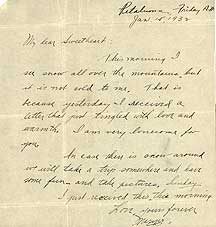 Petaluma, Friday
Jan. 15, 1932
My dear Sweetheart:
This morning I
see snow all over the mountains but
it is not cold to me. That is
because yesterday I received a
letter that just tingled with love and
warmth. I am very lonesome for
you.
In case there is snow around
we will take a trip somewhere and have
some fun and take pictures, Sunday.
I just received this, this morning
Love yours forever